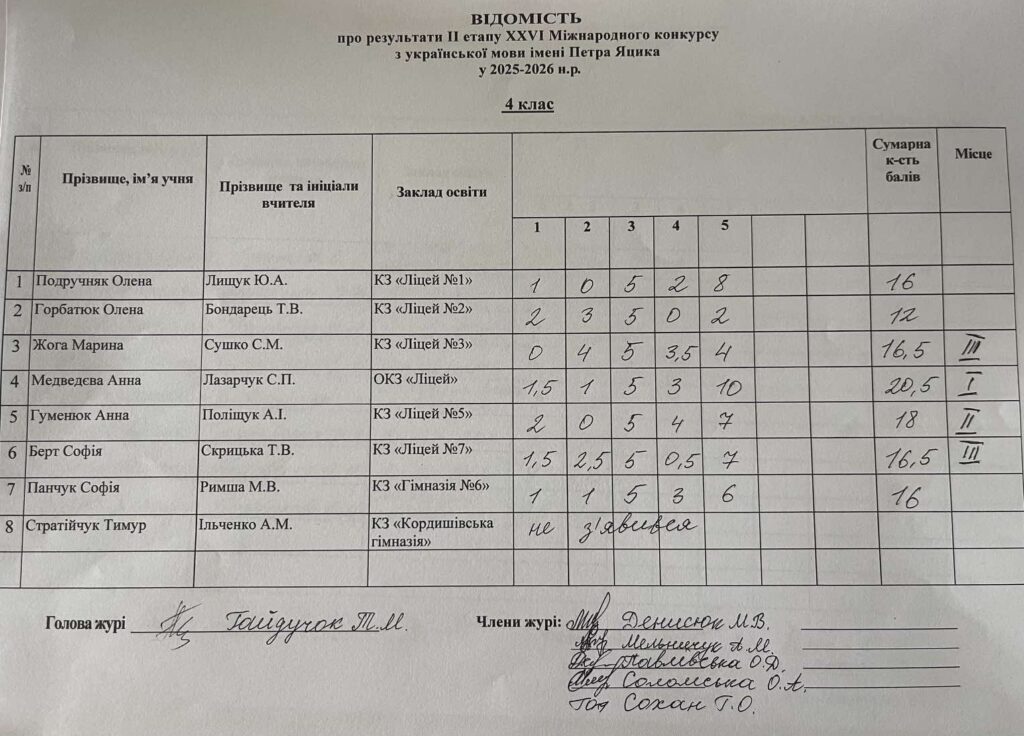 ВІДОМІСТЬ
про результати ІІ етапу XXVI Міжнародного конкурсу
з української мови імені Петра Яцика
у 2025-2026 н.р.
4 клас
№ з/п Прізвище, ім’я учня Прізвище та ініціали вчителя Заклад освіти 1 2 3 4 5 Сумарна к-сть балів Місце
1 Подручняк Олена Лищук Ю.А. КЗ «Ліцей №1» 1 0 5 2 8 16
2 Горбатюк Олена Бондарець Т.В. КЗ «Ліцей №2» 2 3 5 0 2 12
3 Жога Марина Сушко С.М. КЗ «Ліцей №3» 0 4 5 3,5 4 16,5 III
4 Медведєва Анна Лазарчук С.П. ОКЗ «Ліцей» 1,5 1 5 3 10 20,5 I
5 Гуменюк Анна Поліщук А.І. КЗ «Ліцей №5» 2 0 5 4 7 18 II
6 Берт Софія Скрицька Т.В. КЗ «Ліцей №7» 1,5 2,5 5 0,5 7 16,5 III
7 Панчук Софія Римша М.В. КЗ «Гімназія №6» 1 1 5 3 6 16
8 Стратійчук Тимур Ільченко А.М. КЗ «Кордишівська гімназія» не з'явився
Голова журі Гайдучок Т.М. Члени журі: Денисюк М.В.
Мельничук А.М.
Павлівська О.Д.
Соломська О.А.
Сохан Т.О.